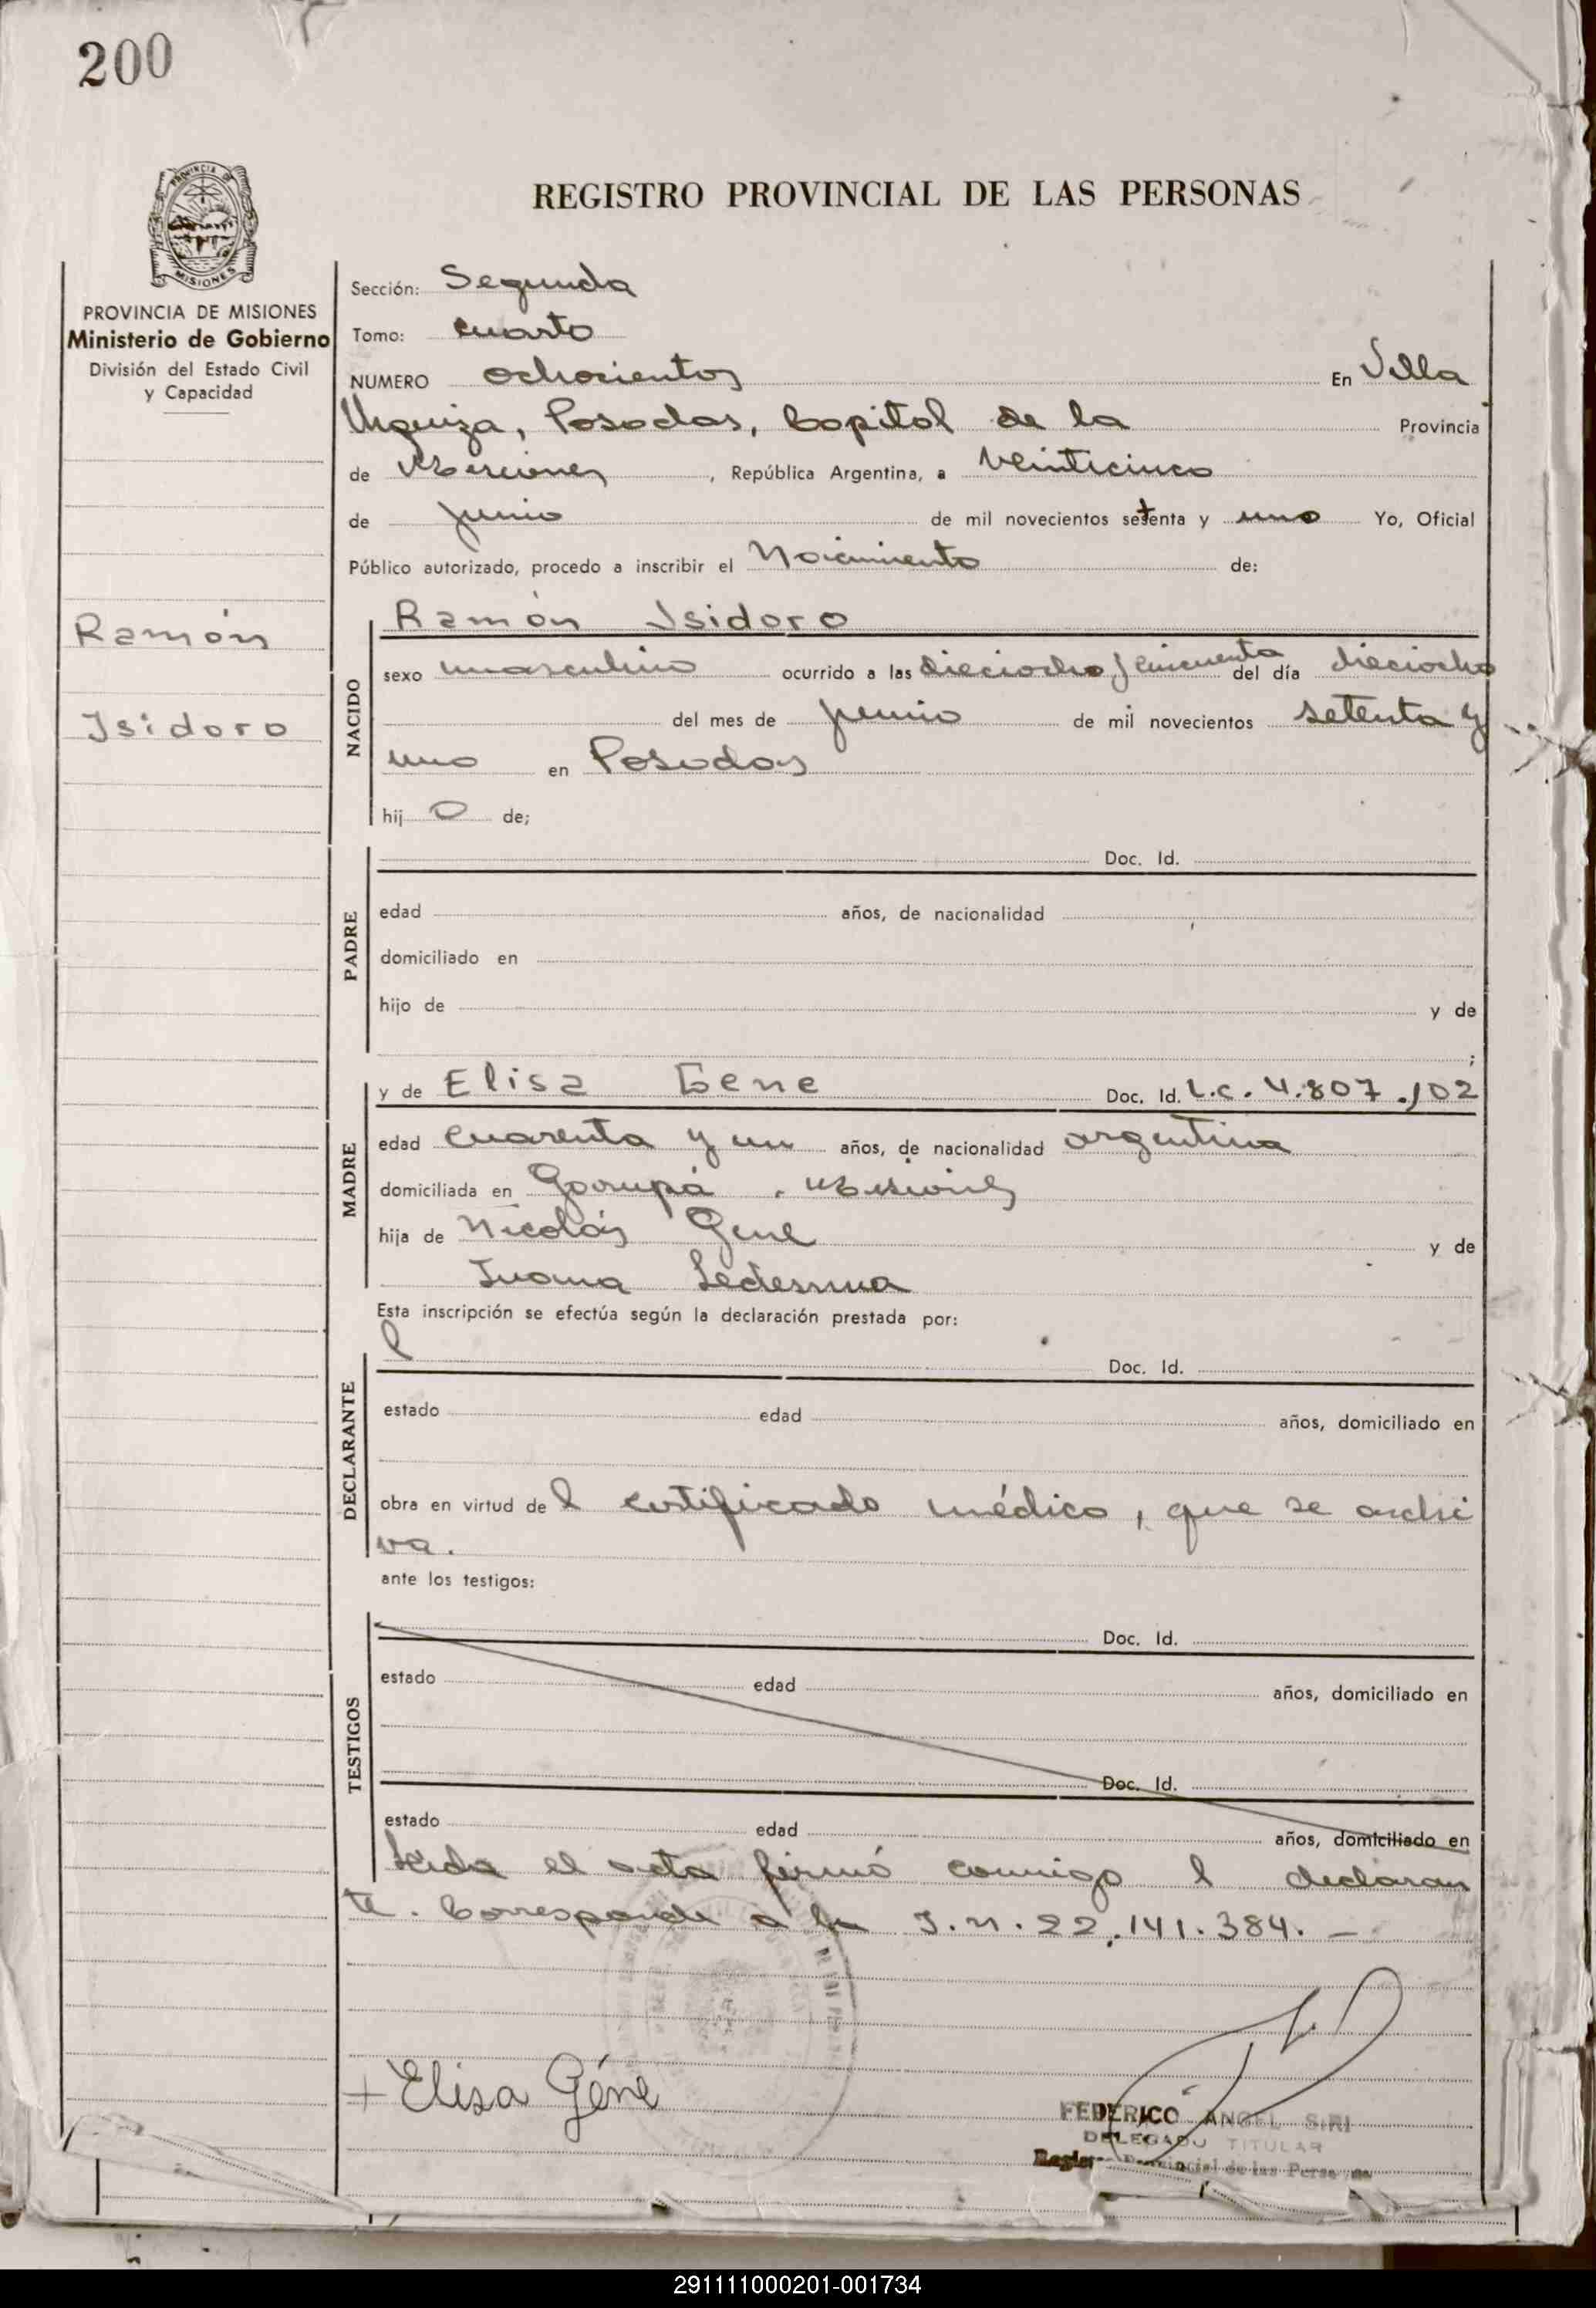 200
PROVINCIA DE
MISIONES
REGISTRO PROVINCIAL DE LAS PERSONAS
PROVINCIA DE MISIONES
Ministerio de Gobierno
División del Estado Civil
y Capacidad
Ramón
Isidoro
Sección: Segunda
Tomo: cuarto
NUMERO ochocientos En Villa
Urquiza, Posadas, Capital de la Provincia
de Misiones, República Argentina, a veinticinco
de junio de mil novecientos setenta y uno Yo, Oficial
Público autorizado, procedo a inscribir el Nacimiento de:
NACIDO
Ramón Isidoro
sexo masculino ocurrido a las dieciocho y cincuenta del día dieciocho
del mes de junio de mil novecientos setenta y
uno en Posadas
hij o de;
PADRE
Doc. Id.
edad años, de nacionalidad
domiciliado en
hijo de y de
;
MADRE
y de Elisa Gene Doc. Id. L.C. 4.807.102
edad cuarenta y un años, de nacionalidad argentina
domiciliada en Garupá, Misiones
hija de Nicolás Gené y de
Juana Ledesma
Esta inscripción se efectúa según la declaración prestada por:
DECLARANTE
Doc. Id.
estado edad años, domiciliado en
obra en virtud del certificado médico, que se archi
va.
ante los testigos:
TESTIGOS
Doc. Id.
estado edad años, domiciliado en
Doc. Id.
estado edad años, domiciliado en
Leida el acta firmó conmigo l declaran
te. Corresponde a la I.N. 22.141.384. —
+ Elisa Géné
FEDERICO ANGEL SIRI
DELEGADO TITULAR
Provincial de las Personas
291111000201-001734